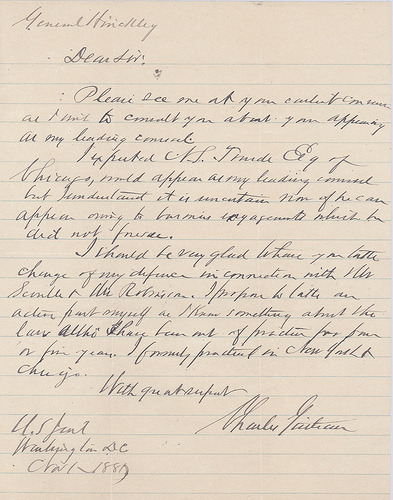 General Hinckley
Dear Sir:
Please see me at your earliest conven
as I want to consult you about your appearing
as my leading counsel.
I expected A.S. Trude Esq of
Chicago, would appear as my leading counsel
but I understand it is uncertain now if he can
appear owing to business engagements which he
did not foresee.
I should be very glad to have you take
charge of my defence in connection with Mr
Scoville & Mr Robinson. I propose to take an
active part myself as I know something about the
law altho I have been out of practice for four
or five years. I formerly practiced in New York &
Chicago.
With great respect
Charles Guiteau
U.S. Jail
Washington D.C.
Nov 1 - 188